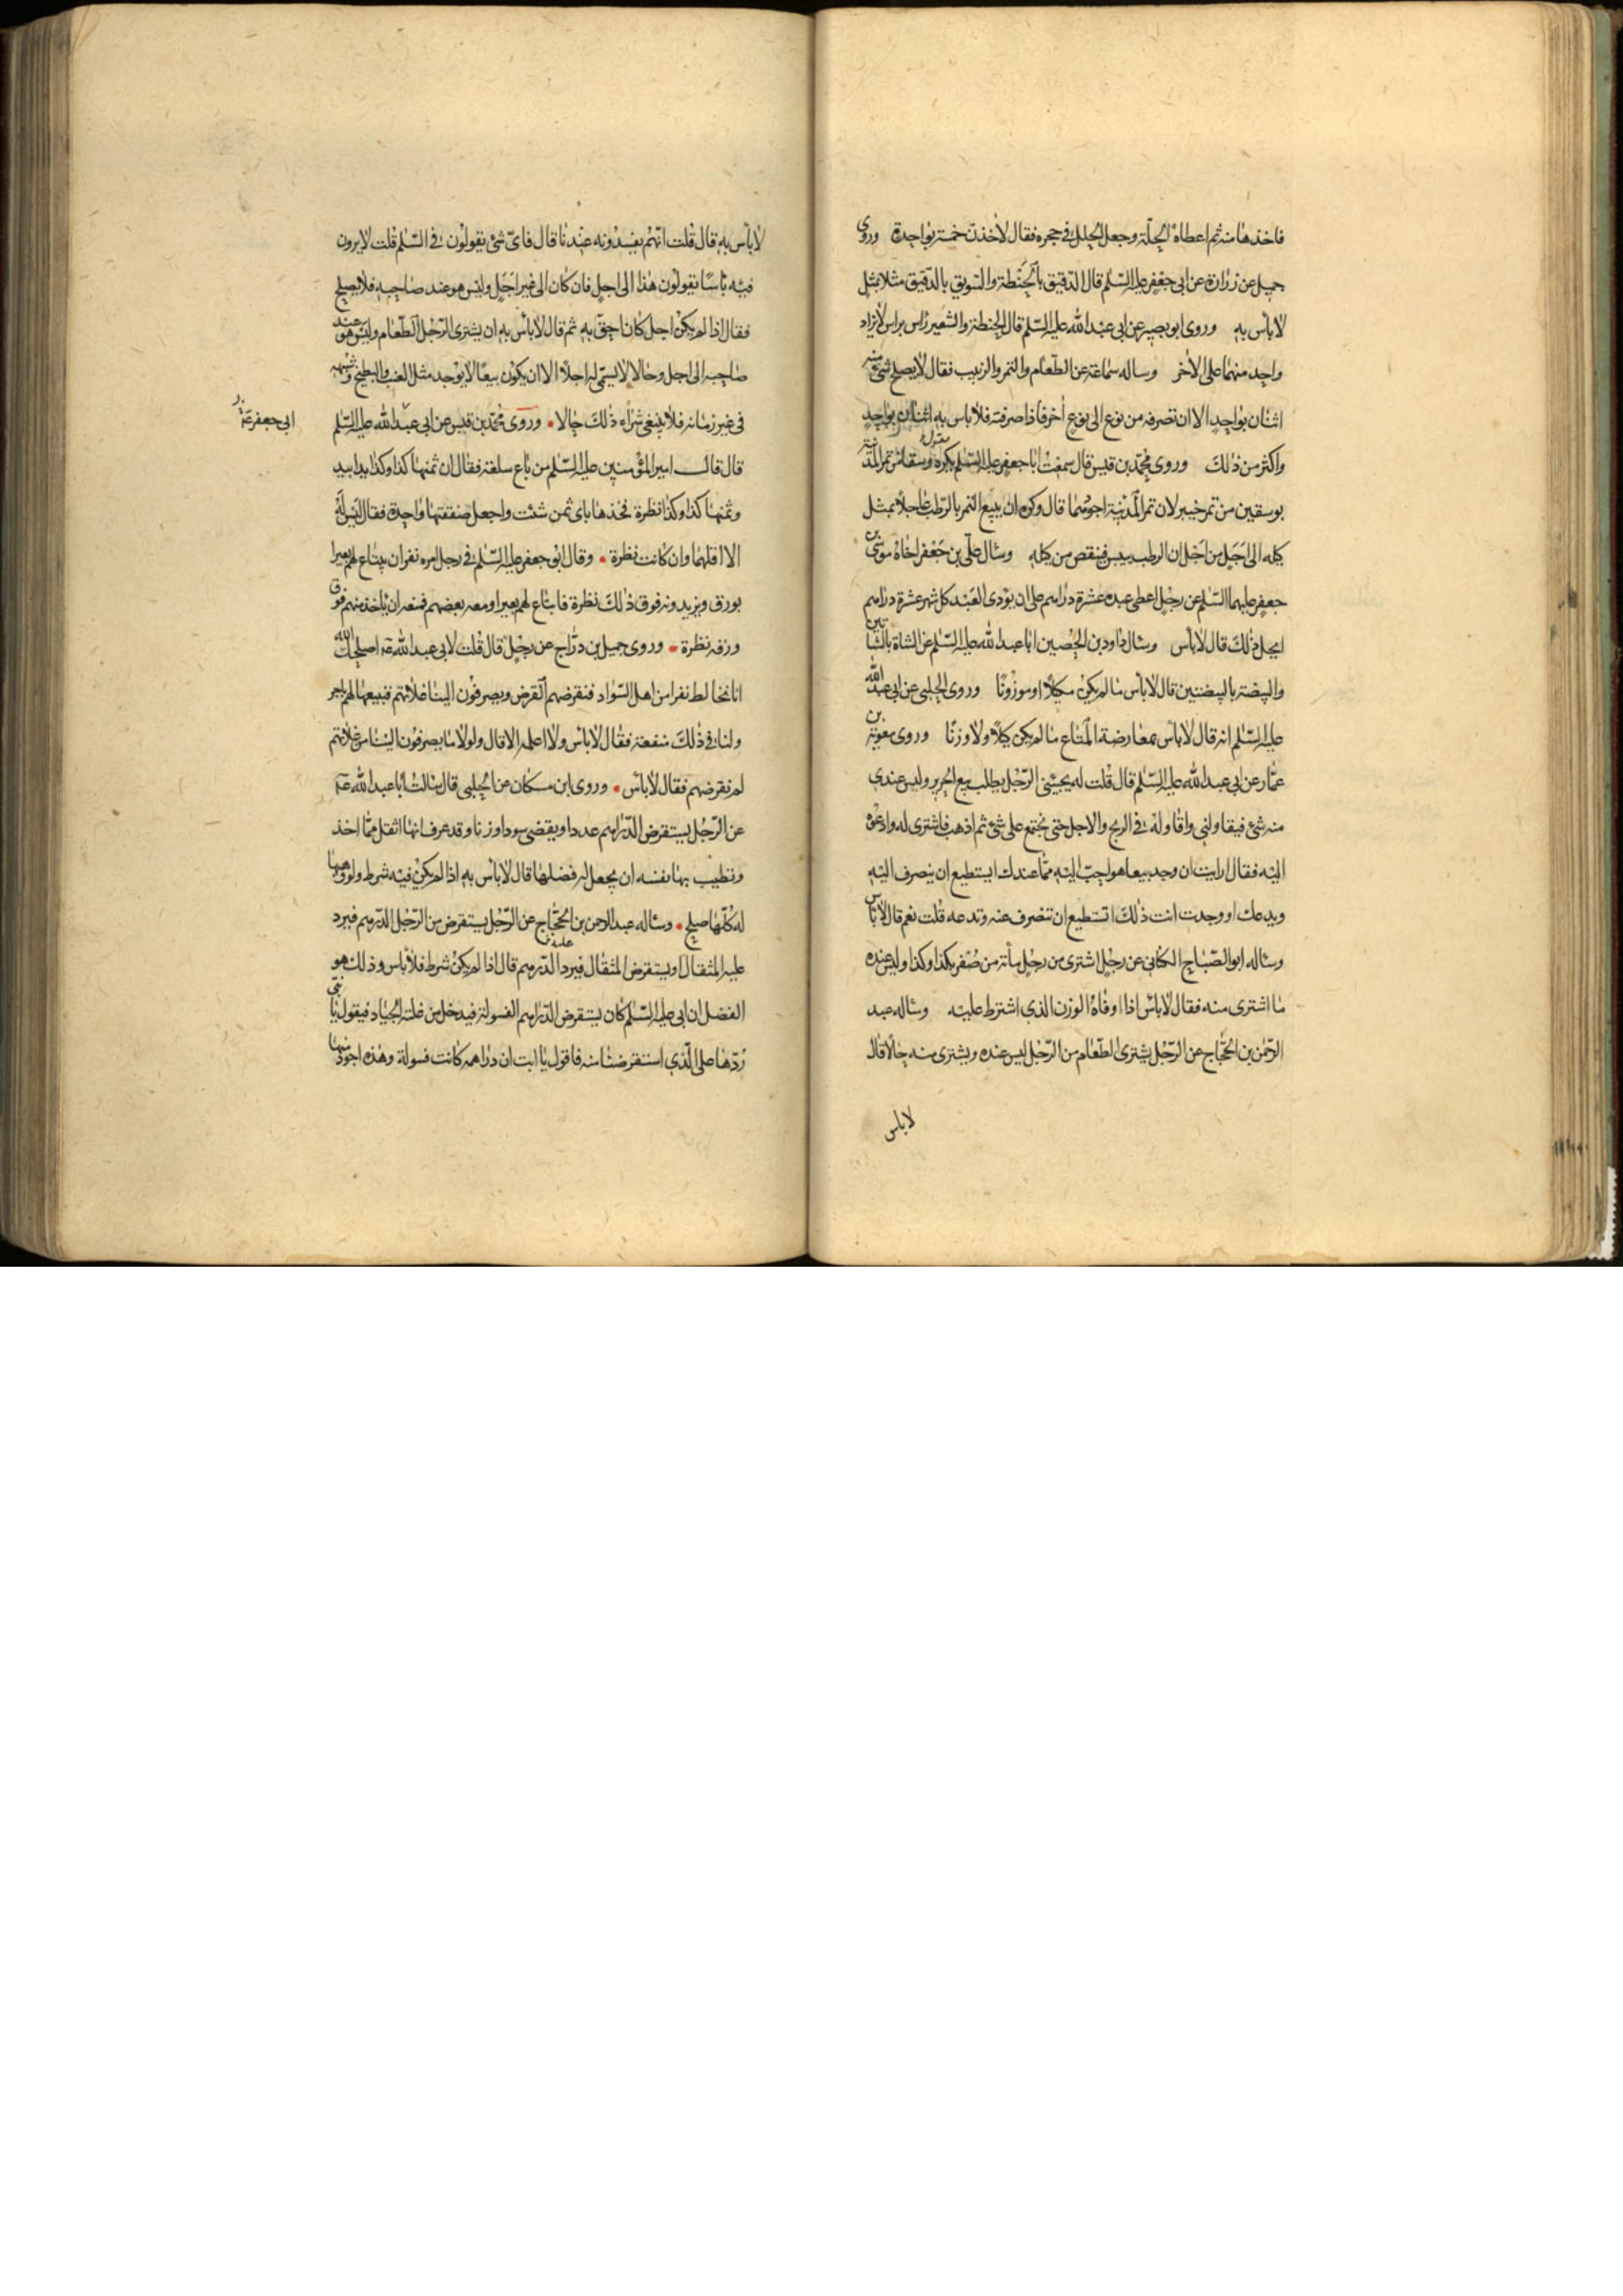 فاخذها منه ثم اعطاه الحلة وجعل الحلل فى حجره فقال لاخذن خمسة بواحدة وروى
جميل عن زرارة عن ابى جعفر عليه السّلم قال الدّقيق بالحنطة والسّويق بالدّقيق مثلا بمثل
لا باس به وروى ابو بصير عن ابى عبد الله عليه السّلم قال الحنطة والشعير راس براس لا يزاد
واحد منهما على الاخر وساله سماعة عن الطّعام والتمر والزبيب فقال لا يصلح شئ منه
اثنان بواحد الا ان تصرفه من نوع الى نوع اخر فاذا صرفته فلا باس به اثنان بواحد
واكثر من ذلك وروى محمّد بن قيس قال سمعت ابا جعفر عليه السّلم يكره وسقا من تمر المدينة
بوسقين من تمر خيبر لان تمر المدينة اجودهما قال وكره ان يبيع التمر بالرّطب عاجلا بمثل
كيله الى اجل من اجل ان الرطب ييبس فينقص من كيله وسئال علّى بن جعفر اخاه موسى بن
جعفر عليهما السّلم عن رجل اعطى عبده عشرة دراهم على ان يؤدى العبد كل شهر عشرة دراهم
ايحل ذلك قال لا باس وسئال داود بن الحصين ابا عبد الله عليه السّلم عن الشاة بالشاتين
والبيضة بالبيضتين قال لا باس ما لم يكن مكيلا او موزونا وروى الحلبى عن ابى عبد الله
عليه السّلم انه قال لا باس بمعارضة المتاع ما لم يكن كيلا ولا وزنا وروى معوية بن
عمّار عن ابى عبد الله عليه السّلم قال قلت له يجيئنى الرّجل يطلب بيع الحرير وليس عندى
منه شئ فيقاولنى واقاوله فى الربح والاجل حتى نجتمع على شئ ثم اذهب فاشترى له وادعوه
اليه فقال ارايت ان وجد بيعا هو احبّ اليه ممّا عندك ايستطيع ان ينصرف اليه
ويدعك او وجدت انت ذلك اتستطيع ان تنصرف عنه وتدعه قلت نعم قال لا باس
وساله ابو الصّباح الكنانى عن رجل اشترى من رجل مأة من صفر بكذا وكذا وليس عنده
ما اشترى منه فقال لا باس اذا اوفاه الوزن الذى اشترط عليه وساله عبد
الرّحمن بن الحجّاج عن الرّجل يشترى الطّعام من الرّجل ليس عنده ويشترى منه حالا قال
لا باس
لا باس به قال قلت انهم يفسدونه عندنا قال فاىّ شئ يقولون فى السّلم قلت لا يرون
فيه باسا يقولون هذا الى اجل فان كان الى غير اجل وليس هو عند صاحبه فلا يصلح
فقال اذا لم يكن اجل كان احقّ به ثم قال لا باس به ان يشترى الرّجل الطّعام وليس هو عند
صاحبه الى اجل وحالا لا يسمّى له اجلا الا ان يكون بيعا لا يوجد مثل العنب والبطيخ وشبهه
فى غير زمانه فلا ينبغى شراء ذلك حالا وروى محمّد بن قيس عن ابى عبد الله عليه السّلم
ابى جعفر عم
قال قال امير المؤمنين عليه السّلم من باع سلعة فقال ان ثمنها كذا وكذا يدا بيد
وثمنها كذا وكذا نظرة فخذها باى ثمن شئت واجعل صفقتها واحدة فقال ليس له
الا اقلهما وان كانت نظرة وقال ابو جعفر عليه السّلم فى رجل امره نفر ان يبتاع لهم بعيرا
بورق ويزيدونه فوق ذلك نظرة فابتاع لهم بعيرا ومعه بعضهم فمنعه ان ياخذ منهم فوق
ورقه نظرة وروى جميل بن درّاج عن رجل قال قلت لابى عبد الله عه اصلحك الله
انا نخالط نفرا من اهل السّواد فنقرضهم القرض ويصرفون الينا غلاتهم فنبيعها لهم باجر
ولنا فى ذلك منفعة فقال لا باس ولا اعلمه الا قال ولولا ما يصرفون الينا من غلاتهم
لم نقرضهم فقال لا باس وروى ابن مسكان عن الحلبى قال سالت ابا عبد الله عه
عن الرّجل يستقرض الدّراهم عددا ويقضى سودا وزنا وقد عرف انها اثقل ممّا اخذ
وتطيب بها نفسه ان يجعل له فضلها قال لا باس به اذا لم يكن فيه شرط ولو وهبها
له كلّها صلح وساله عبد الرحمن بن الحجّاج عن الرّجل يستقرض من الرّجل الدّرهم فيرد
عليه المثقال او يستقرض المثقال فيرد الدّرهم قال اذا لم يكن شرط فلا باس وذلك هو
الفضل ان ابى عليه السّلم كان يستقرض الدّراهم الفسولة فيدخل من غلته الجياد فيقول يا بنى
ردّها على الّذى استقرضنا منه فاقول يا ابت ان دراهمه كانت فسولة وهذه اجود منها